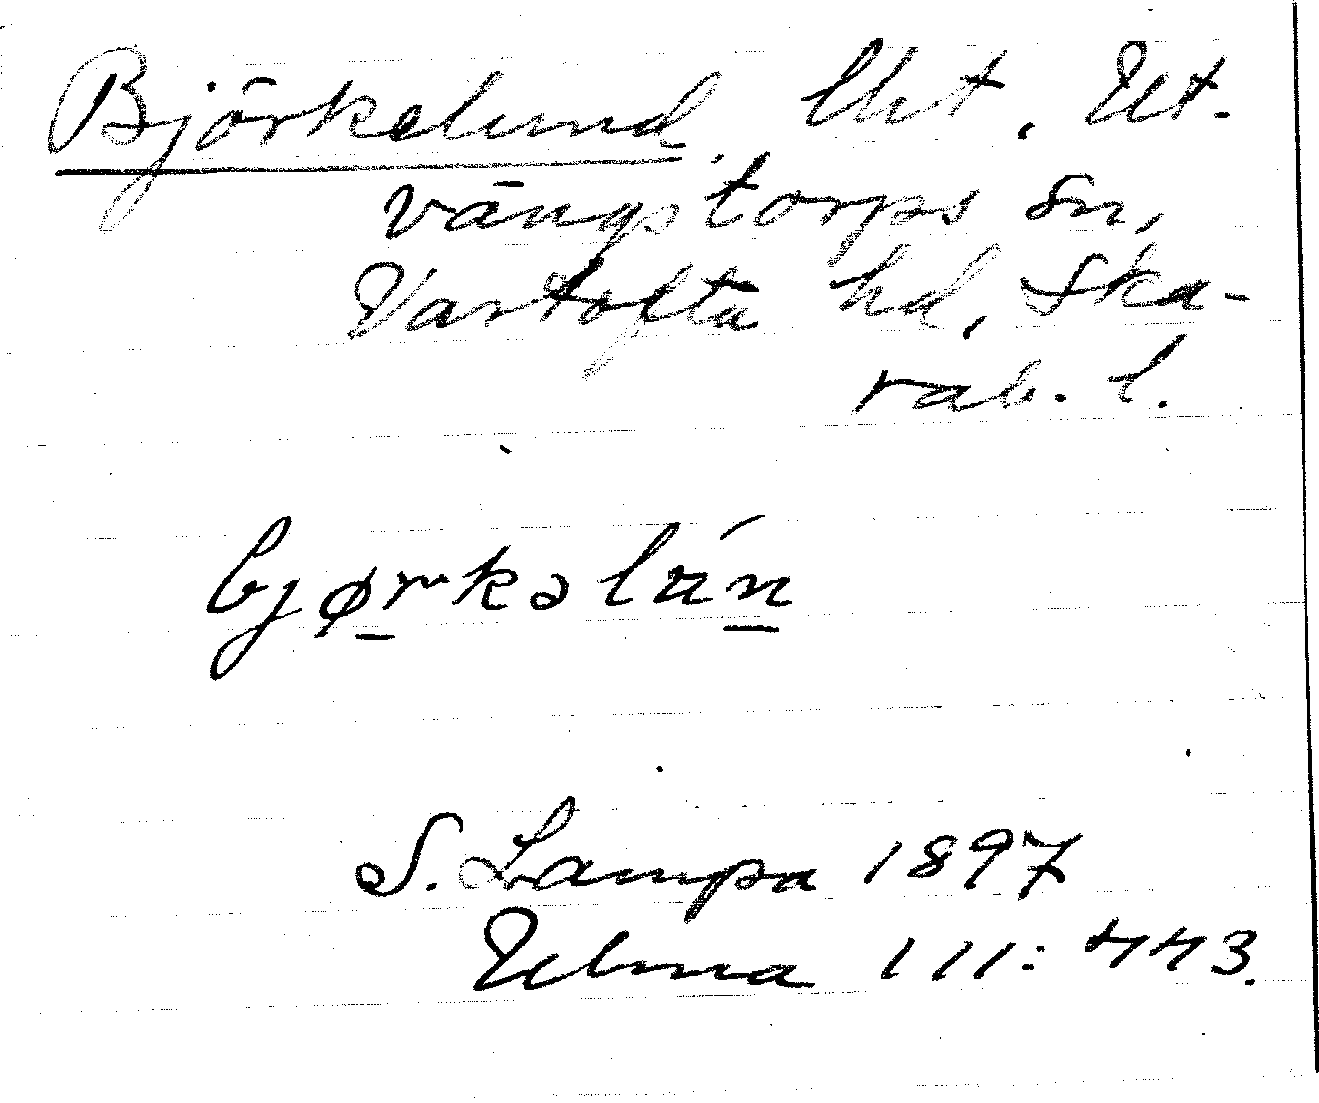 Björkelund, lht. Ut-
vängstorps sn,
Vartofta hd, Ska-
rab. l.
bjørkəlún
S. Lampa 1897
Ulma 111: 443.